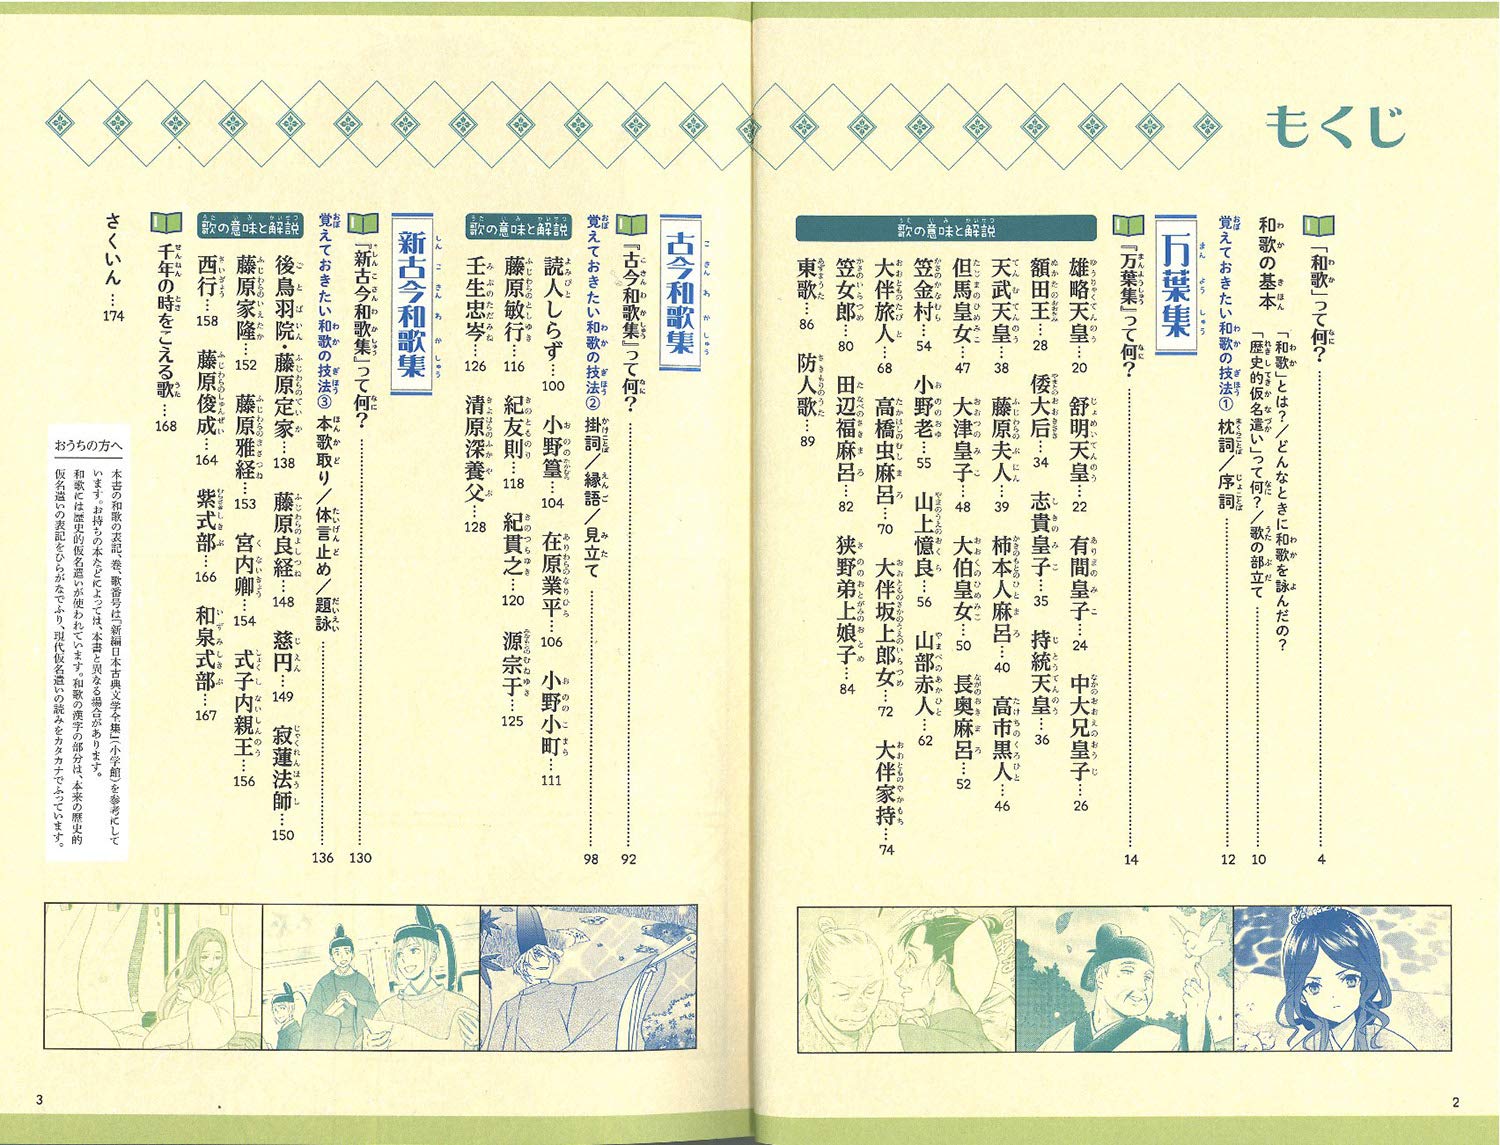 もくじ
『和歌』って何？ 4
和歌の基本 『和歌』とは？／どんなときに和歌を詠んだの？
「歴史的仮名遣い」って何？／歌の部立て 10
覚えておきたい和歌の技法① 枕詞／序詞 12
万葉集
『万葉集』って何？ 14
歌の意味と解説
雄略天皇…20 舒明天皇…22 有間皇子…24 中大兄皇子…26
額田王…28 倭大后…34 志貴皇子…35 持統天皇…36
天武天皇…38 藤原夫人…39 柿本人麻呂…40 高市黒人…46
但馬皇女…47 大津皇子…48 大伯皇女…50 長奥麻呂…52
笠金村…54 小野老…55 山上憶良…56 山部赤人…62
大伴旅人…68 高橋虫麻呂…70 大伴坂上郎女…72 大伴家持…74
笠女郎…80 田辺福麻呂…82 狭野弟上娘子…84
東歌…86 防人歌…89
古今和歌集
『古今和歌集』って何？ 92
覚えておきたい和歌の技法② 掛詞／縁語／見立て 98
歌の意味と解説
読人しらず…100 小野篁…104 在原業平…106 小野小町…111
藤原敏行…116 紀友則…118 紀貫之…120 源宗于…125
壬生忠岑…126 清原深養父…128
新古今和歌集
『新古今和歌集』って何？ 130
覚えておきたい和歌の技法③ 本歌取り／体言止め／題詠 136
歌の意味と解説
後鳥羽院・藤原定家…138 藤原良経…148 慈円…149 寂蓮法師…150
藤原家隆…152 藤原雅経…153 宮内卿…154 式子内親王…156
西行…158 藤原俊成…164 紫式部…166 和泉式部…167
千年の時をこえる歌…168
さくいん…174
おうちの方へ
本書の和歌の表記、巻、歌番号は『新編日本古典文学全集』（小学館）を参考にして
います。お持ちの本などによっては、本書と異なる場合があります。
和歌には歴史的仮名遣いが使われています。和歌の漢字の部分は、本来の歴史的
仮名遣いの表記をひらがなでふり、現代仮名遣いの読みをカタカナでふっています。
2
3